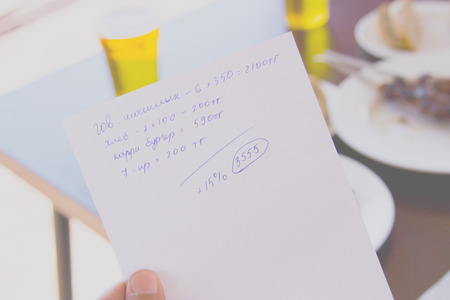 гов. шашлык – 6 × 350 = 2100тг
хлеб – 2 × 100 – 200тг
карри бургер = 590тг
= 200 тг
+15% 3555